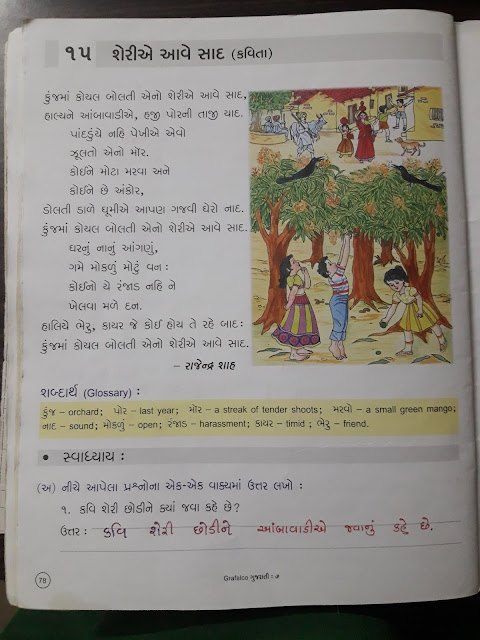 ૧૫ શેરીએ આવે સાદ (કવિતા)
કુંજમાં કોયલ બોલતી એનો શેરીએ આવે સાદ,
હાલ્યને આંબાવાડીએ, હજી પોરની તાજી યાદ.
પાંદડુંયે નહિ પેખીએ એવો
ઝૂલતો એનો મૉર.
કોઈને મોટા મરવા અને
કોઈને છે અંકોર,
ડોલતી ડાળે ઘૂમીએ આપણ ગજવી ઘેરો નાદ.
કુંજમાં કોયલ બોલતી એનો શેરીએ આવે સાદ.
ઘરનું નાનું આંગણું,
ગમે મોકળું મોટું વન :
કોઈનો યે રંજાડ નહિ ને
ખેલવા મળે દન.
હાલિયે ભેરુ, કાયર જે કોઈ હોય તે રહે બાદ :
કુંજમાં કોયલ બોલતી એનો શેરીએ આવે સાદ.
– રાજેન્દ્ર શાહ
શબ્દાર્થ (Glossary) :
કુંજ – orchard; પોર – last year; મૉર – a streak of tender shoots; મરવો – a small green mango;
નાદ – sound; મોકળું – open; રંજાડ – harassment; કાયર – timid ; ભેરુ – friend.
• સ્વાધ્યાય :
(અ) નીચે આપેલા પ્રશ્નોના એક-એક વાક્યમાં ઉત્તર લખો :
૧. કવિ શેરી છોડીને ક્યાં જવા કહે છે?
ઉત્તર : કવિ શેરી છોડીને આંબાવાડીએ જવાનું કહે છે.
78
Grafalco ગુજરાતી : ૭